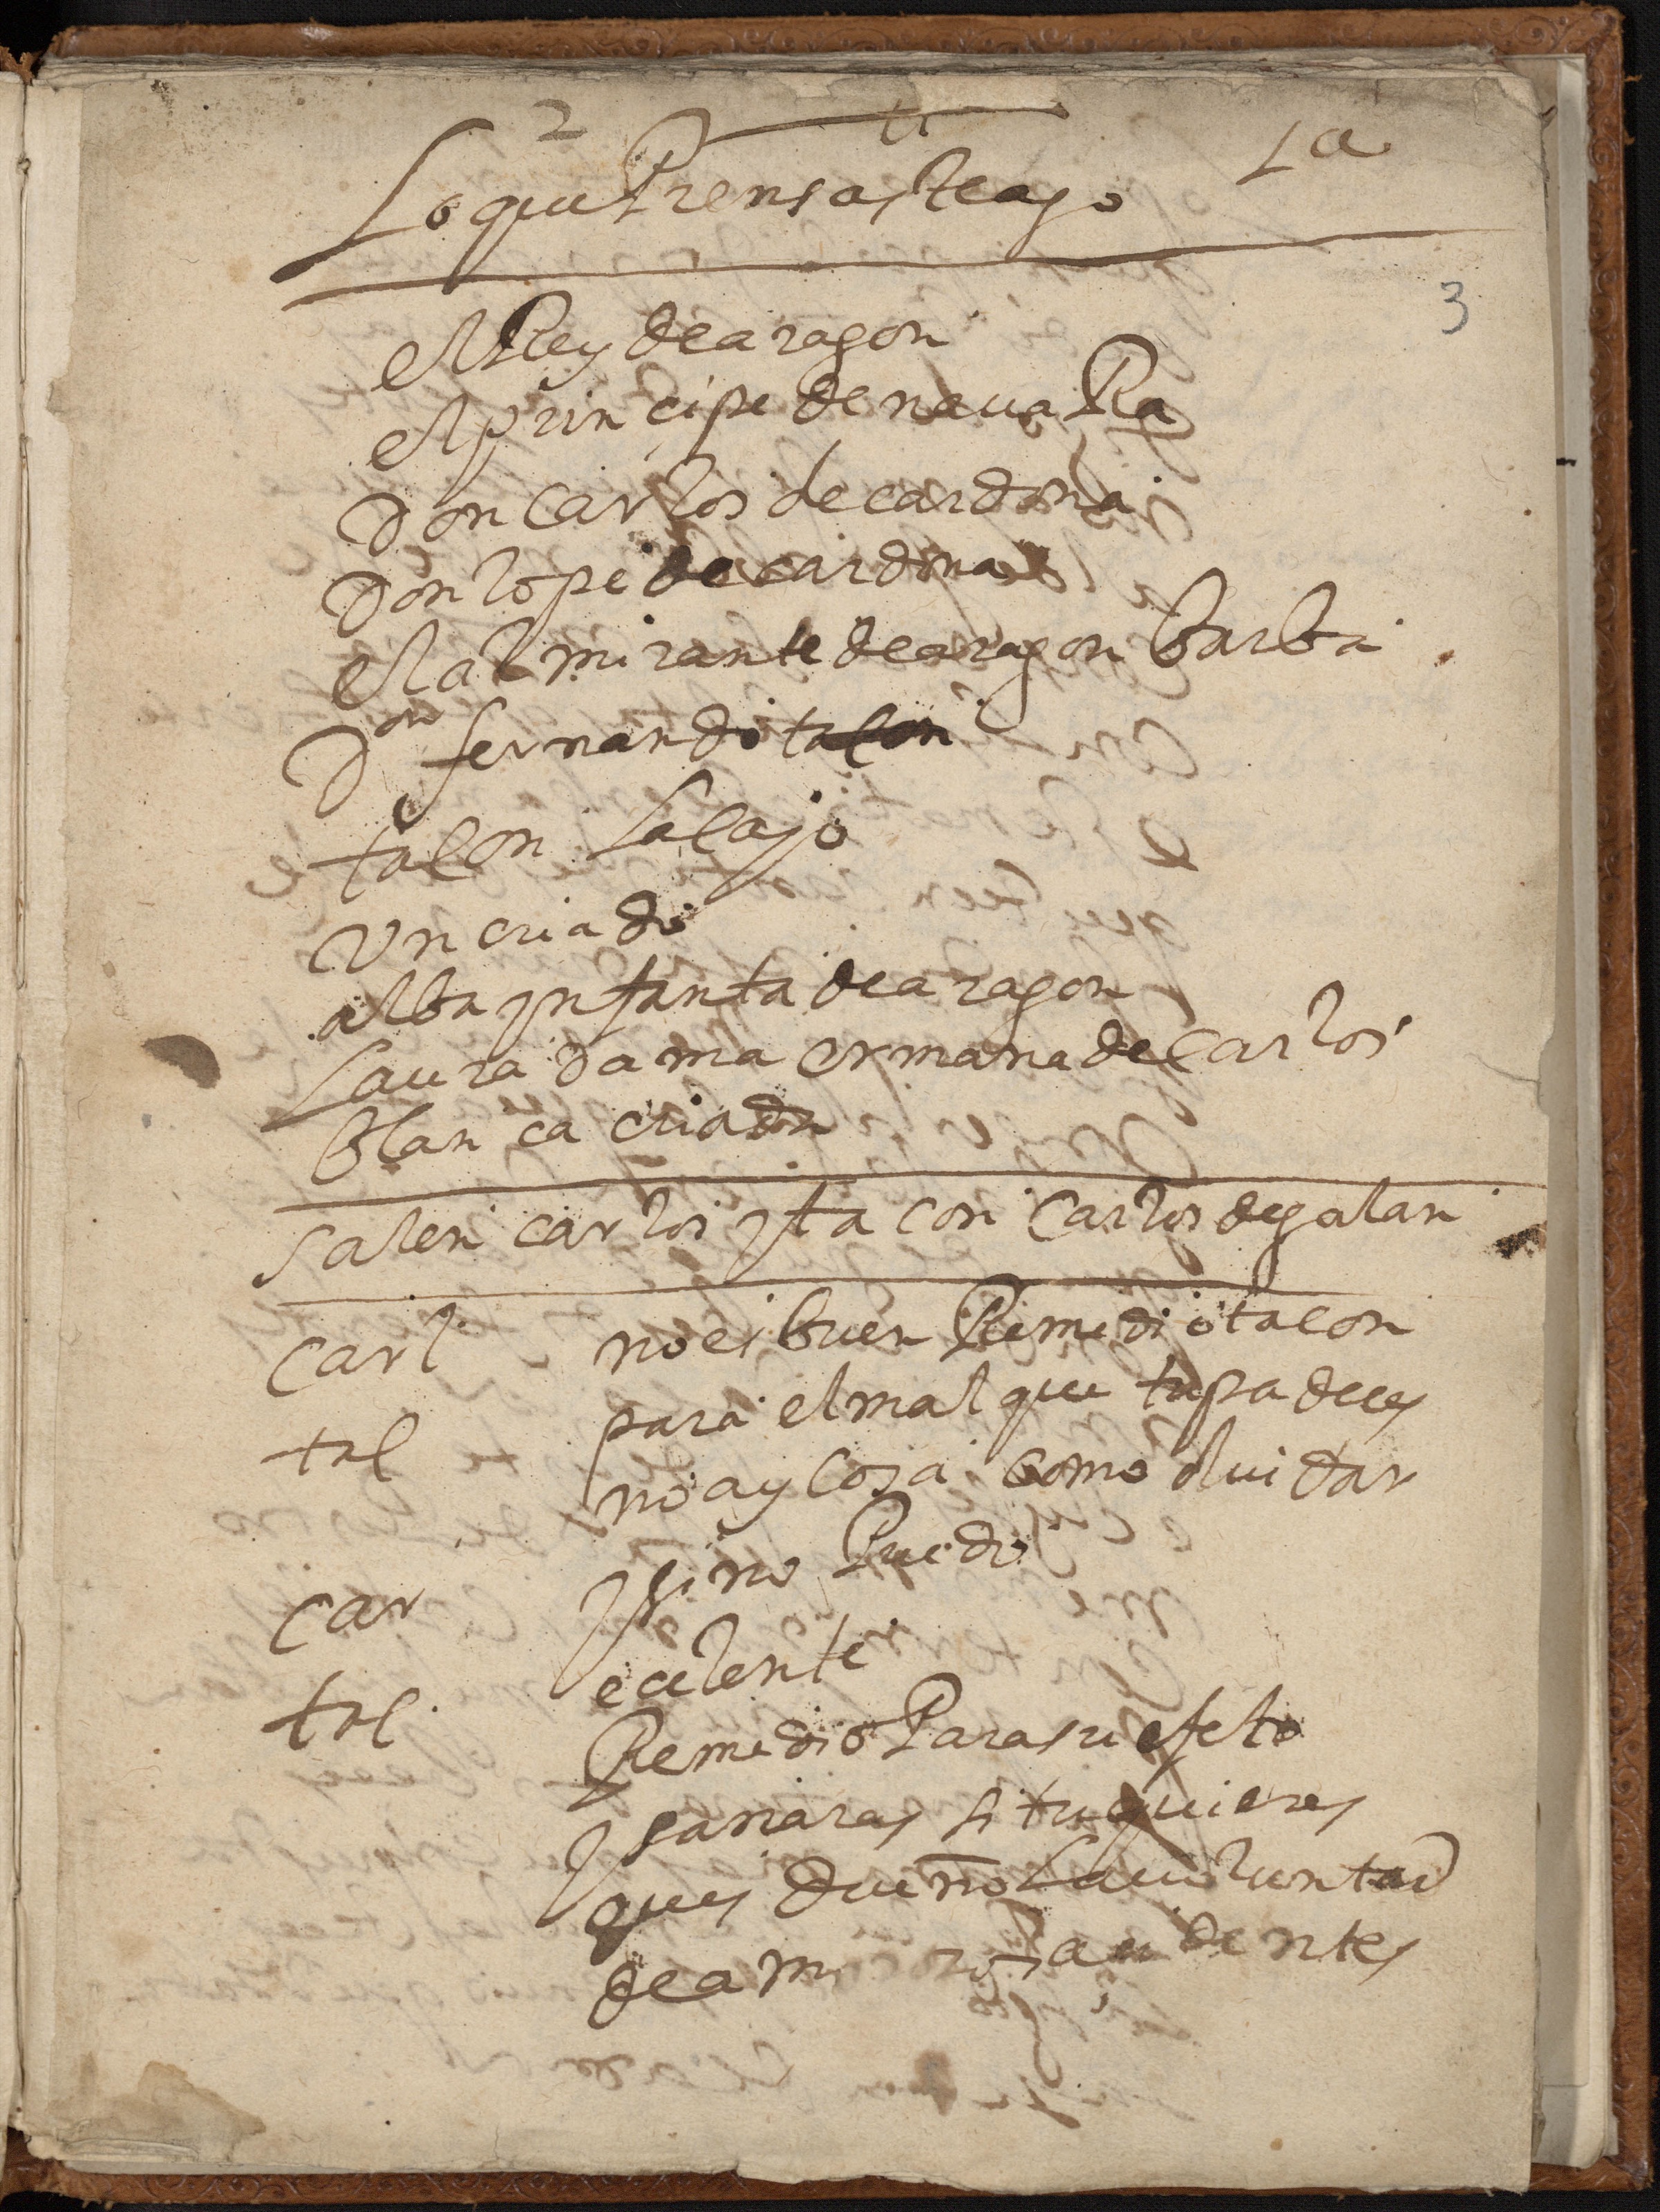 2
1a
Lo que Piensas te ago
3
el Rey de aragon
el principe de navaRa
Don carlos de cardona
Don lope de cardona
el almirante de aragon barba
Don fernando
tacon Lacayo
Un criado
alba ynfanta de aragon
Laura dama ermana de carlos
blanca criada
salen carlos y tacon carlos de galan
carl no es buen Remedio tacon
para el mal que tu padeces
tac no ay cosa como olvidar
car y si no Puedo
tac ecelente
Remedio Para su efeto
y sanaras si tu quieres
ques dueño la voluntad
de amorosos acidentes